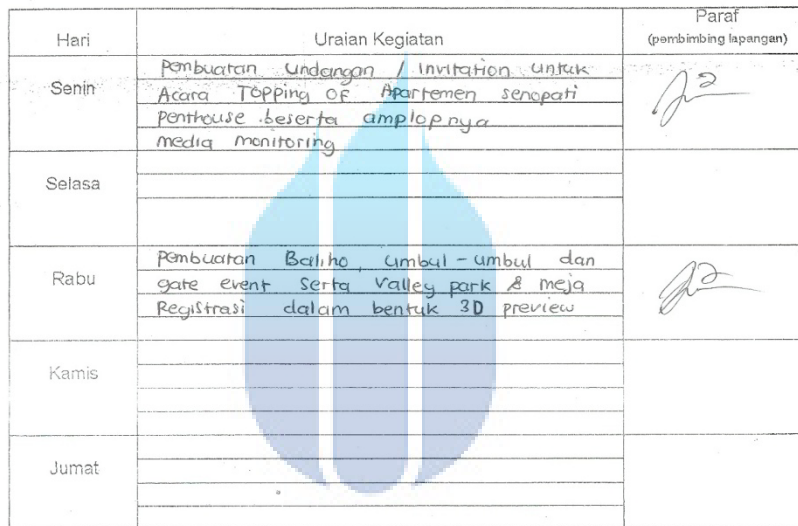 Hari Uraian Kegiatan Paraf
(pembimbing lapangan)
Senin
Pembuatan undangan / Invitation untuk
Acara Topping OF Apartemen senopati
penthouse beserta amplopnya
media monitoring
Selasa
Rabu
Pembuatan Baliho, umbul-umbul dan
gate event serta Valley park & meja
Registrasi dalam bentuk 3D preview
Kamis
Jumat